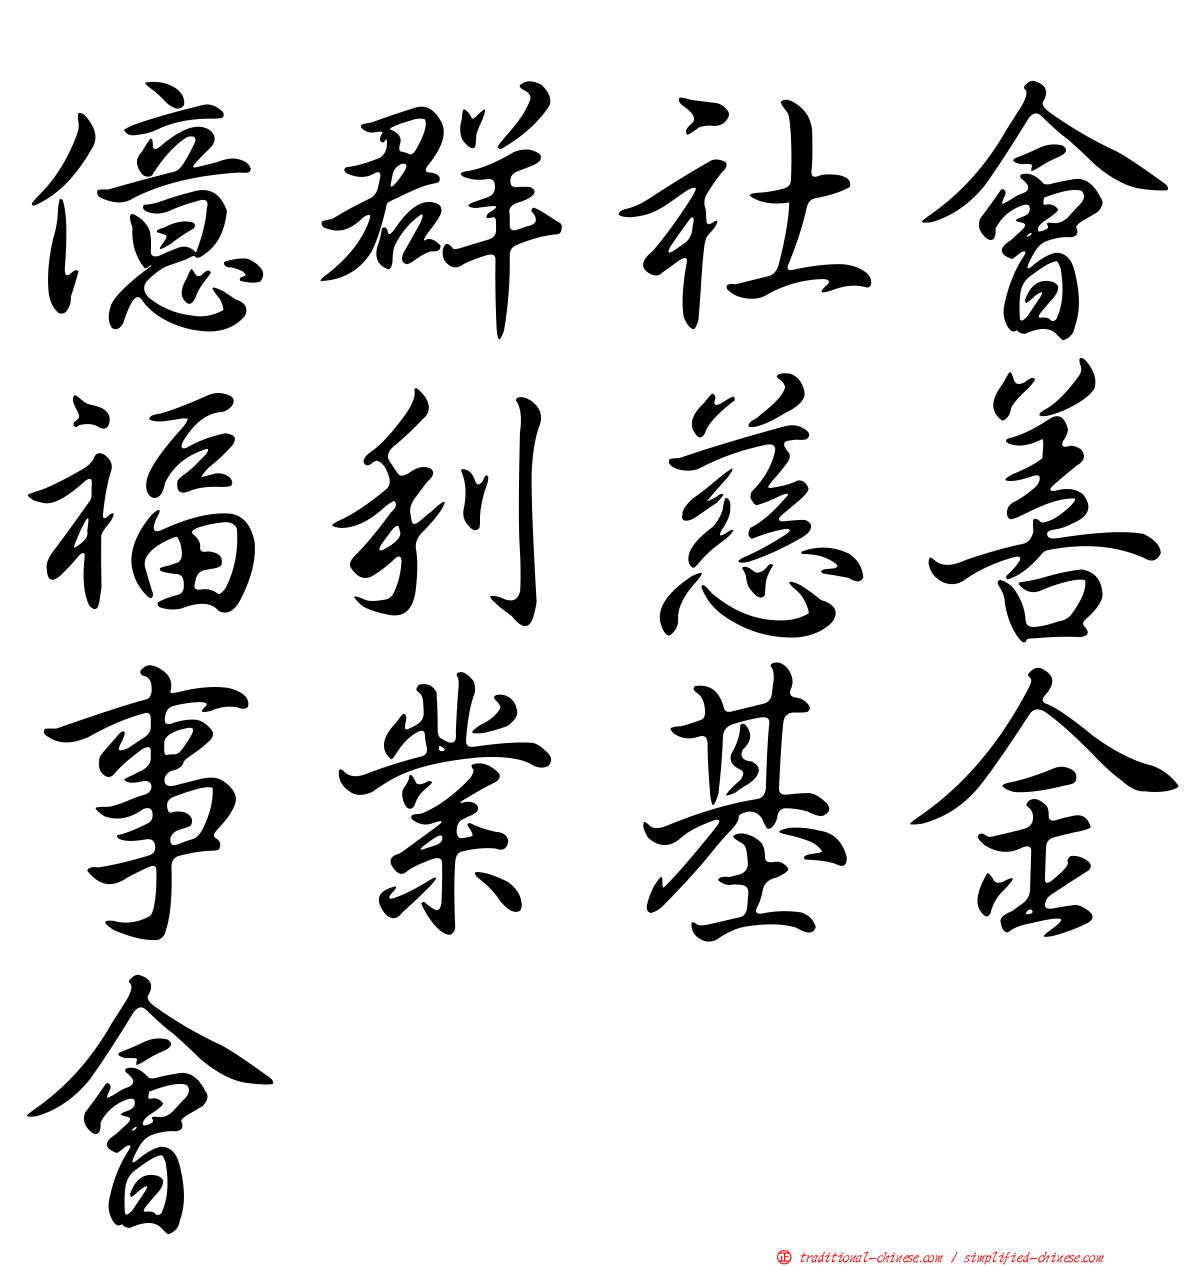 億群社會
福利慈善
事業基金
會
正 traditional-chinese.com / simplified-chinese.com